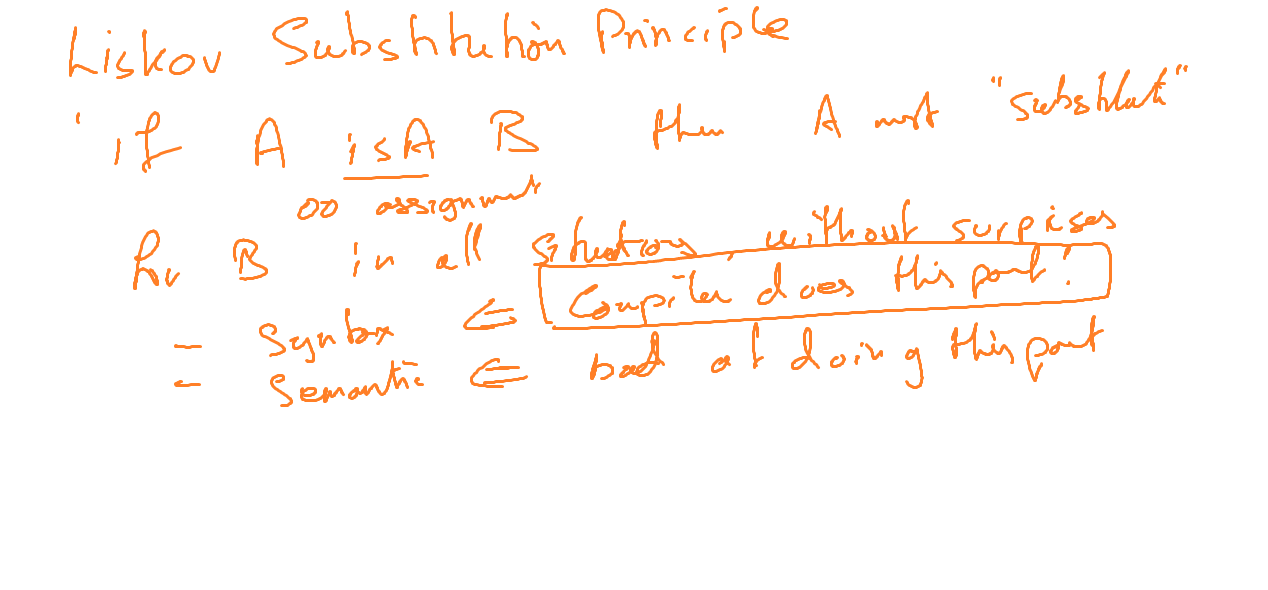 Liskov Substitution Principle
" if A isA B then A must "substitute"
OO assignment
for B in all situations, without surprises
- Syntax ⇐ Compiler does this part!
- Semantic ⇐ bad at doing this part